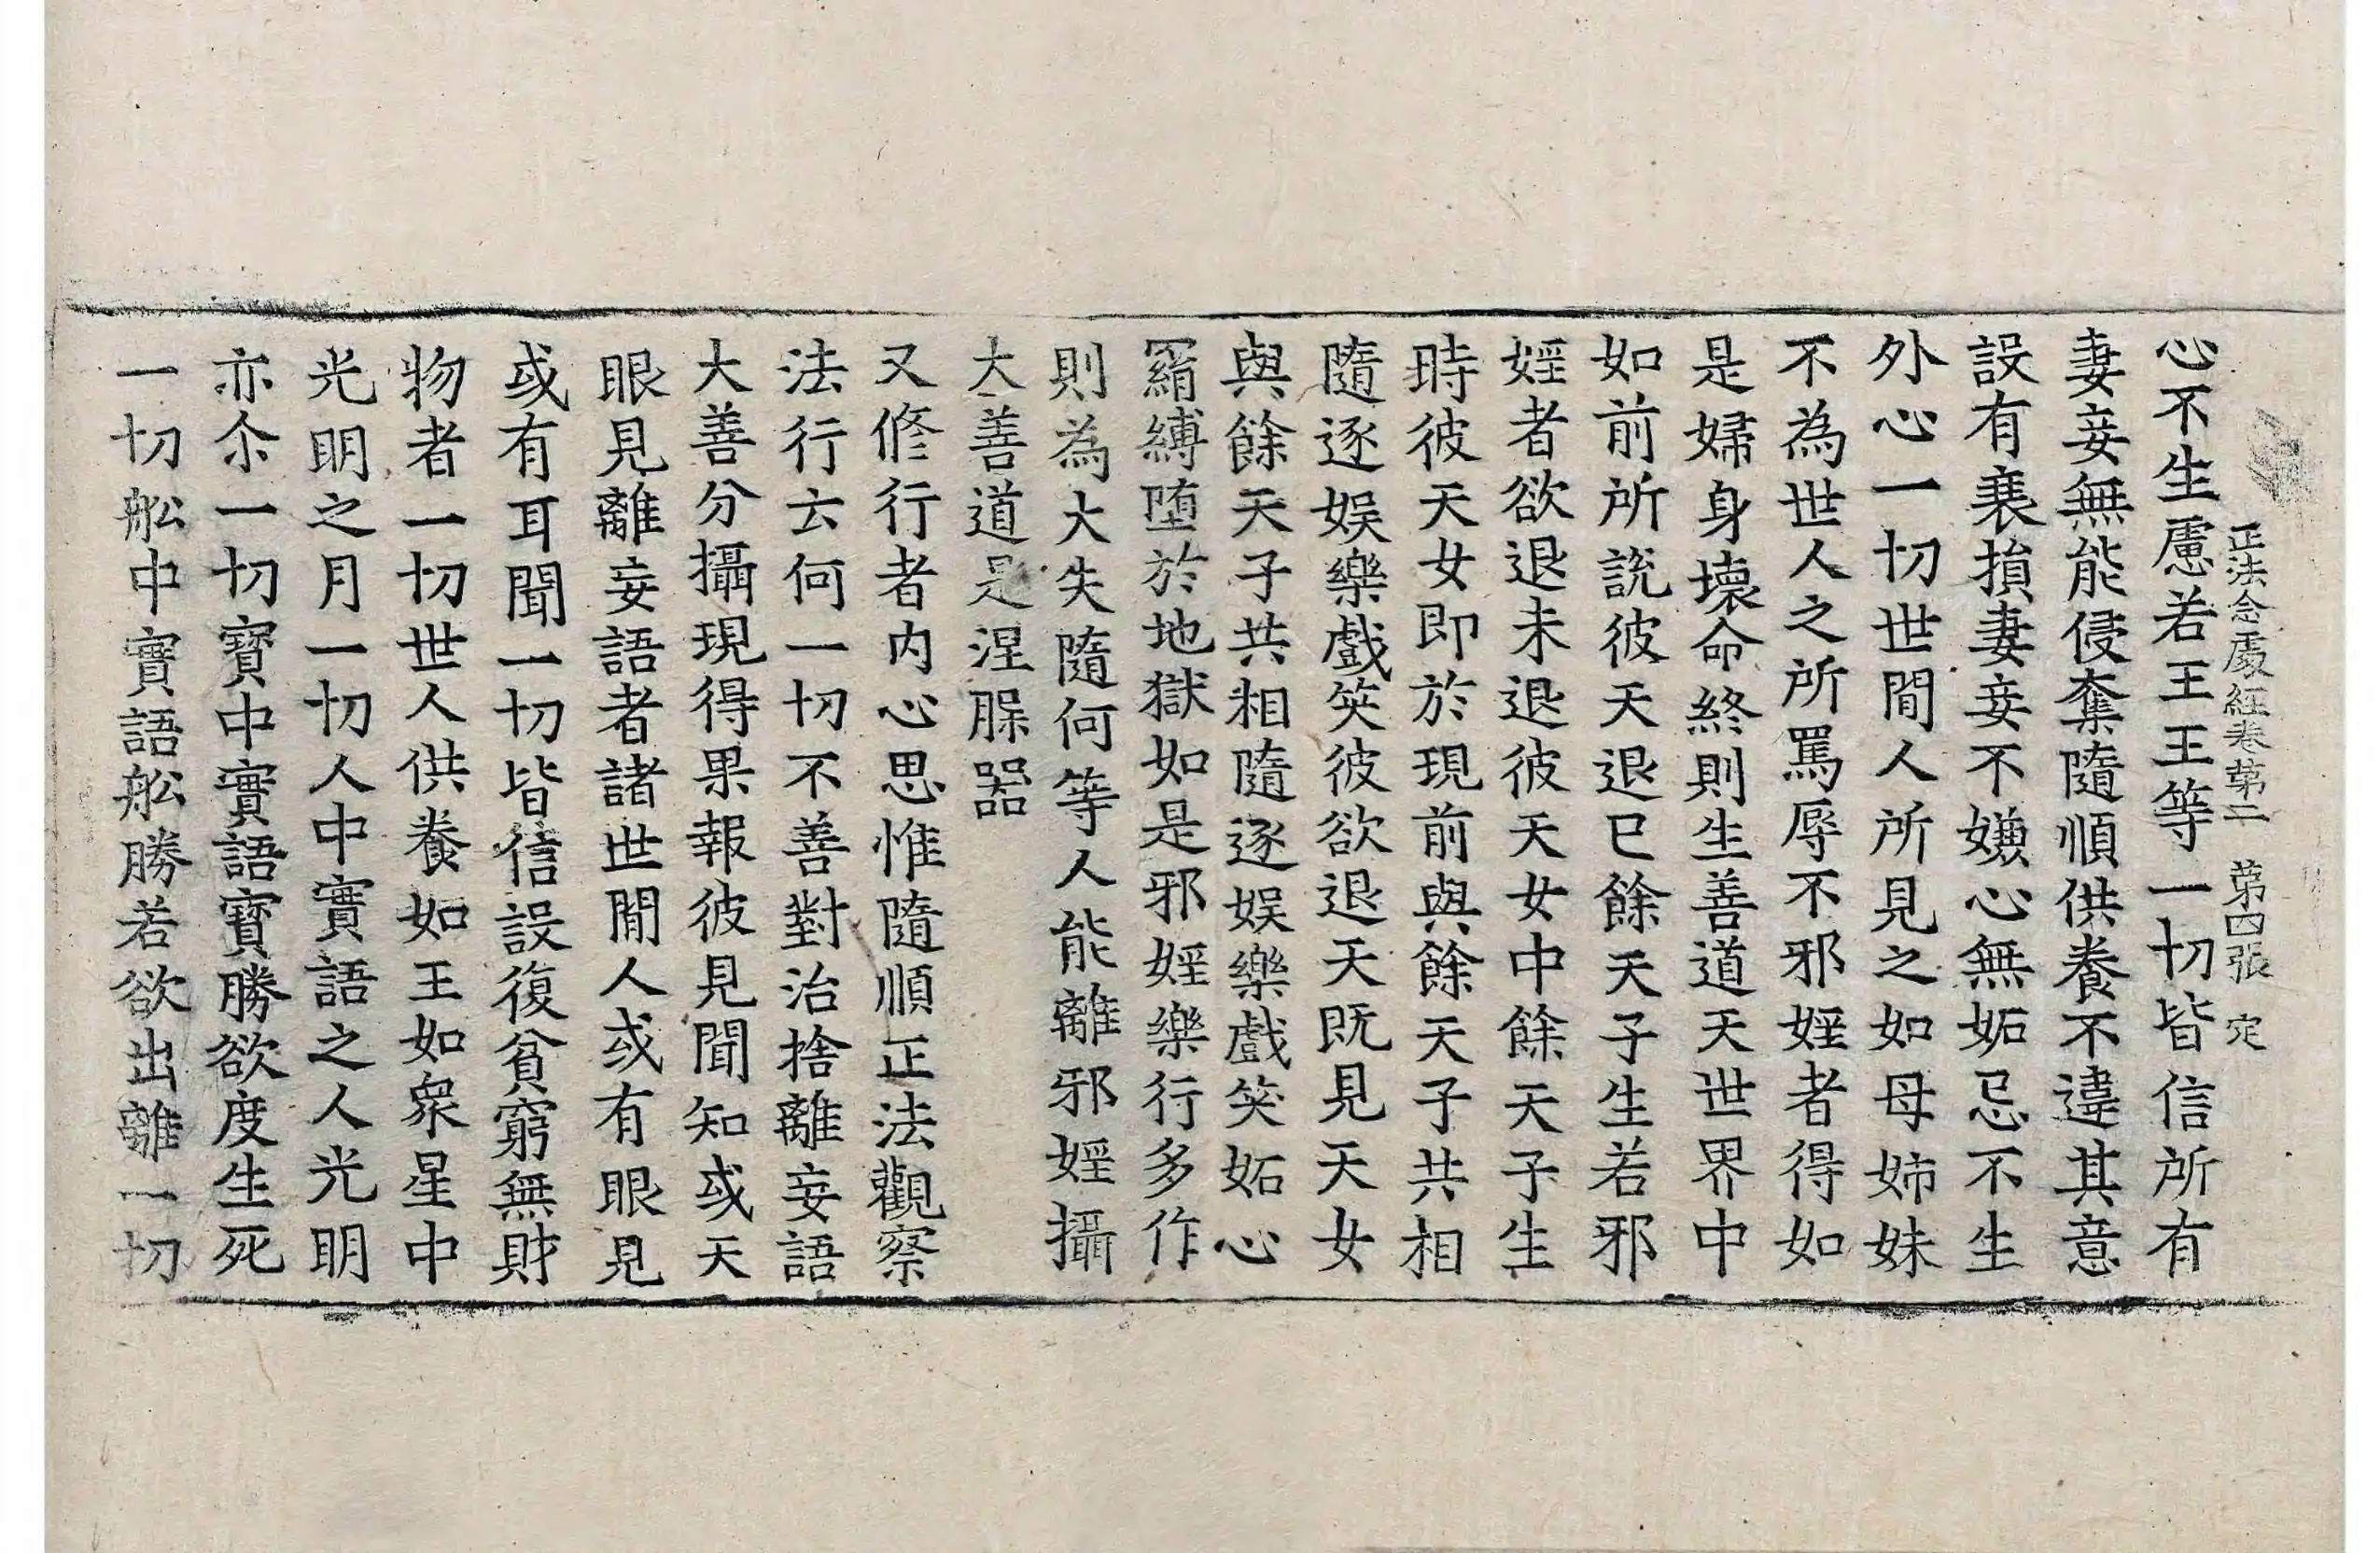 正法念處經卷第二　第四張　定
心不生慮若王王等一切皆信所有
妻妾無能侵奪隨順供養不違其意
設有衰損妻妾不嫌心無妬忌不生
外心一切世間人所見之如母姉妹
不為世人之所罵辱不邪婬者得如
是婦身壞命終則生善道天世界中
如前所說彼天退已餘天子生若邪
婬者欲退未退彼天女中餘天子生
時彼天女即於現前與餘天子共相
隨逐娛樂戲笑彼欲退天既見天女
與餘天子共相隨逐娛樂戲笑妬心
羂縛堕於地獄如是邪婬樂行多作
則為大失隨何等人能離邪婬攝
大善道是涅槃器
又修行者内心思惟隨順正法觀察
法行云何一切不善對治捨離妄語
大善分攝現得果報彼見聞知或天
眼見離妄語者諸世間人或有眼見
或有耳聞一切皆信設復貧窮無財
物者一切世人供養如王如衆星中
光明之月一切人中實語之人光明
亦尒一切寶中實語寶勝欲度生死
一切舩中實語舩勝若欲出離一切